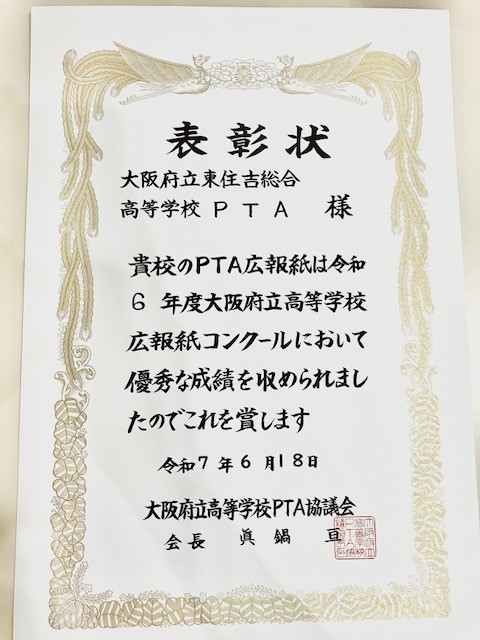 表彰状
大阪府立東住吉総合
高等学校 PTA 様
貴校のPTA広報紙は令和
6年度大阪府立高等学校
広報紙コンクールにおいて
優秀な成績を収められまし
たのでこれを賞します
令和7年6月18日
大阪府立高等学校PTA協議会
会長 眞鍋 亘